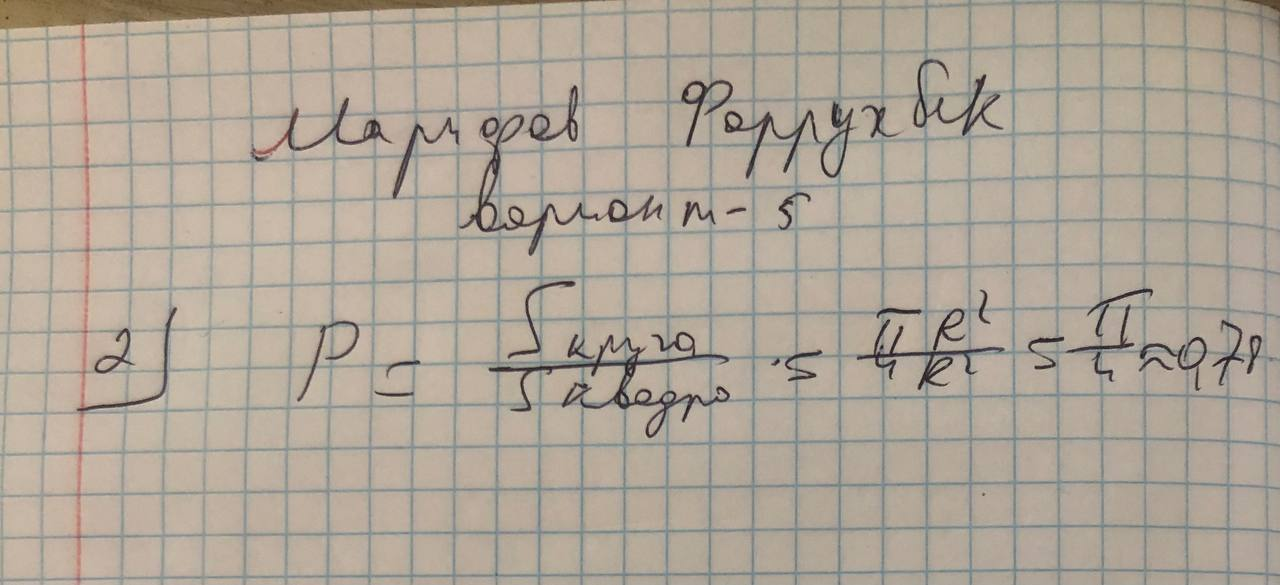 Маридов Фаррухбек
вариант - 5
2) P = S круга / S квадра · = π R² / 4 R² = π / 4 ≈ 0,78